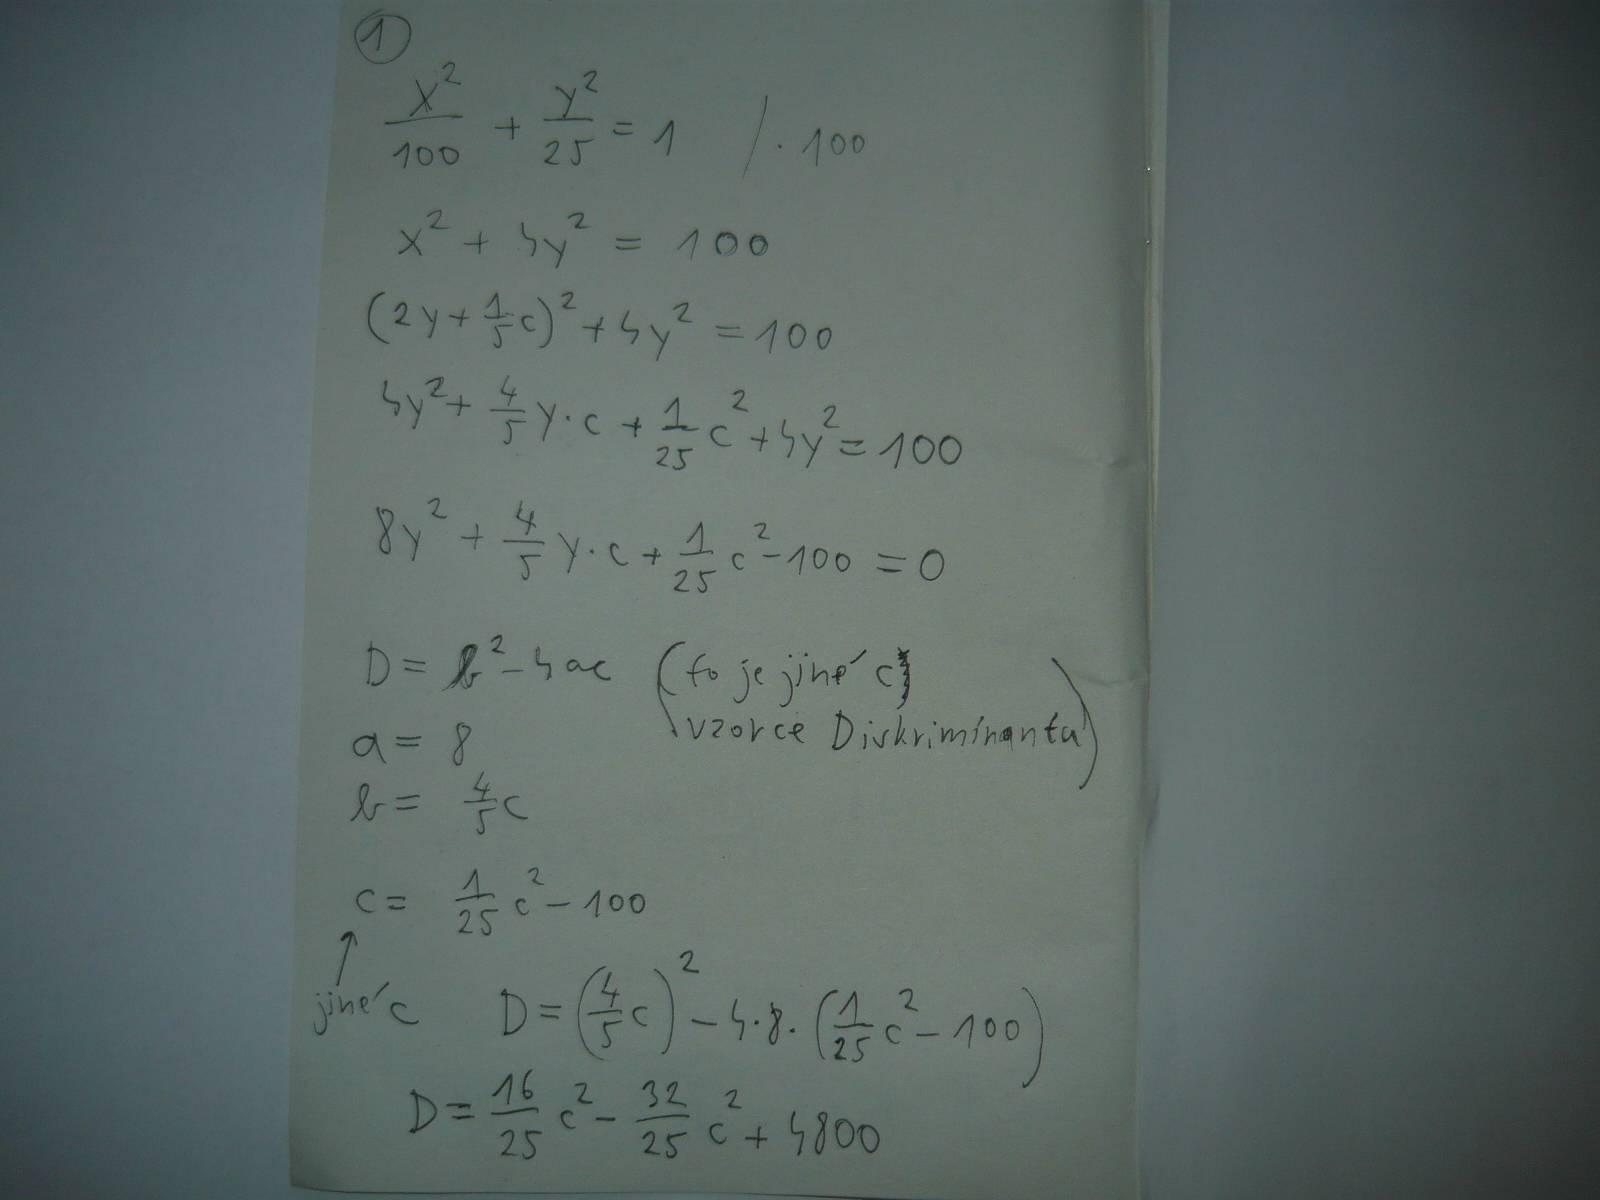 ①
x²/100 + y²/25 = 1 / · 100
x² + 4y² = 100
(2y + 1/5 c)² + 4y² = 100
4y² + 4/5 y · c + 1/25 c² + 4y² = 100
8y² + 4/5 y · c + 1/25 c² - 100 = 0
D = b² - 4ac (to je jiné c
vzorce Diskriminanta)
a = 8
b = 4/5 c
c = 1/25 c² - 100
jiné c
D = (4/5 c)² - 4 · 8 · (1/25 c² - 100)
D = 16/25 c² - 32/25 c² + 4800